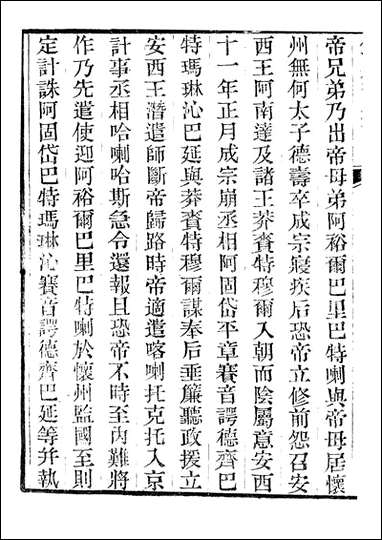 帝兄弟乃出帝母弟阿裕爾巴里巴特喇與帝母居懷
州無何太子德壽卒成宗寢疾后恐帝立修前怨召安
西王阿南達及諸王莽賚特穆爾入朝而陰屬意安西
十一年正月成宗崩丞相阿固岱平章賽音諤德齊巴
特瑪琳沁巴延與莽賚特穆爾謀奉后垂簾聽政援立
安西王潛遣師斷帝歸路時帝適遣喀喇托克托入京
計事丞相哈喇哈斯急令還報且恐帝不時至內難將
作乃先遣使迎阿裕爾巴里巴特喇於懷州監國至則
定計誅阿固岱巴特瑪琳沁賽音諤德齊巴延等并執